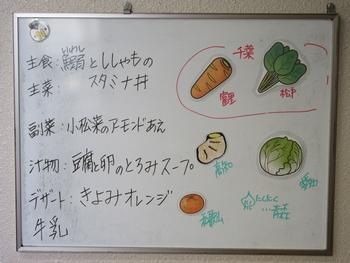 主食:鰯とししゃもの
主菜 スタミナ丼
副菜:小松菜のアーモンドあえ
汁物:豆腐と卵のとろみスープ
デザート:きよみオレンジ
牛乳
千葉
高知
愛知
和歌山
にんにく
…青森